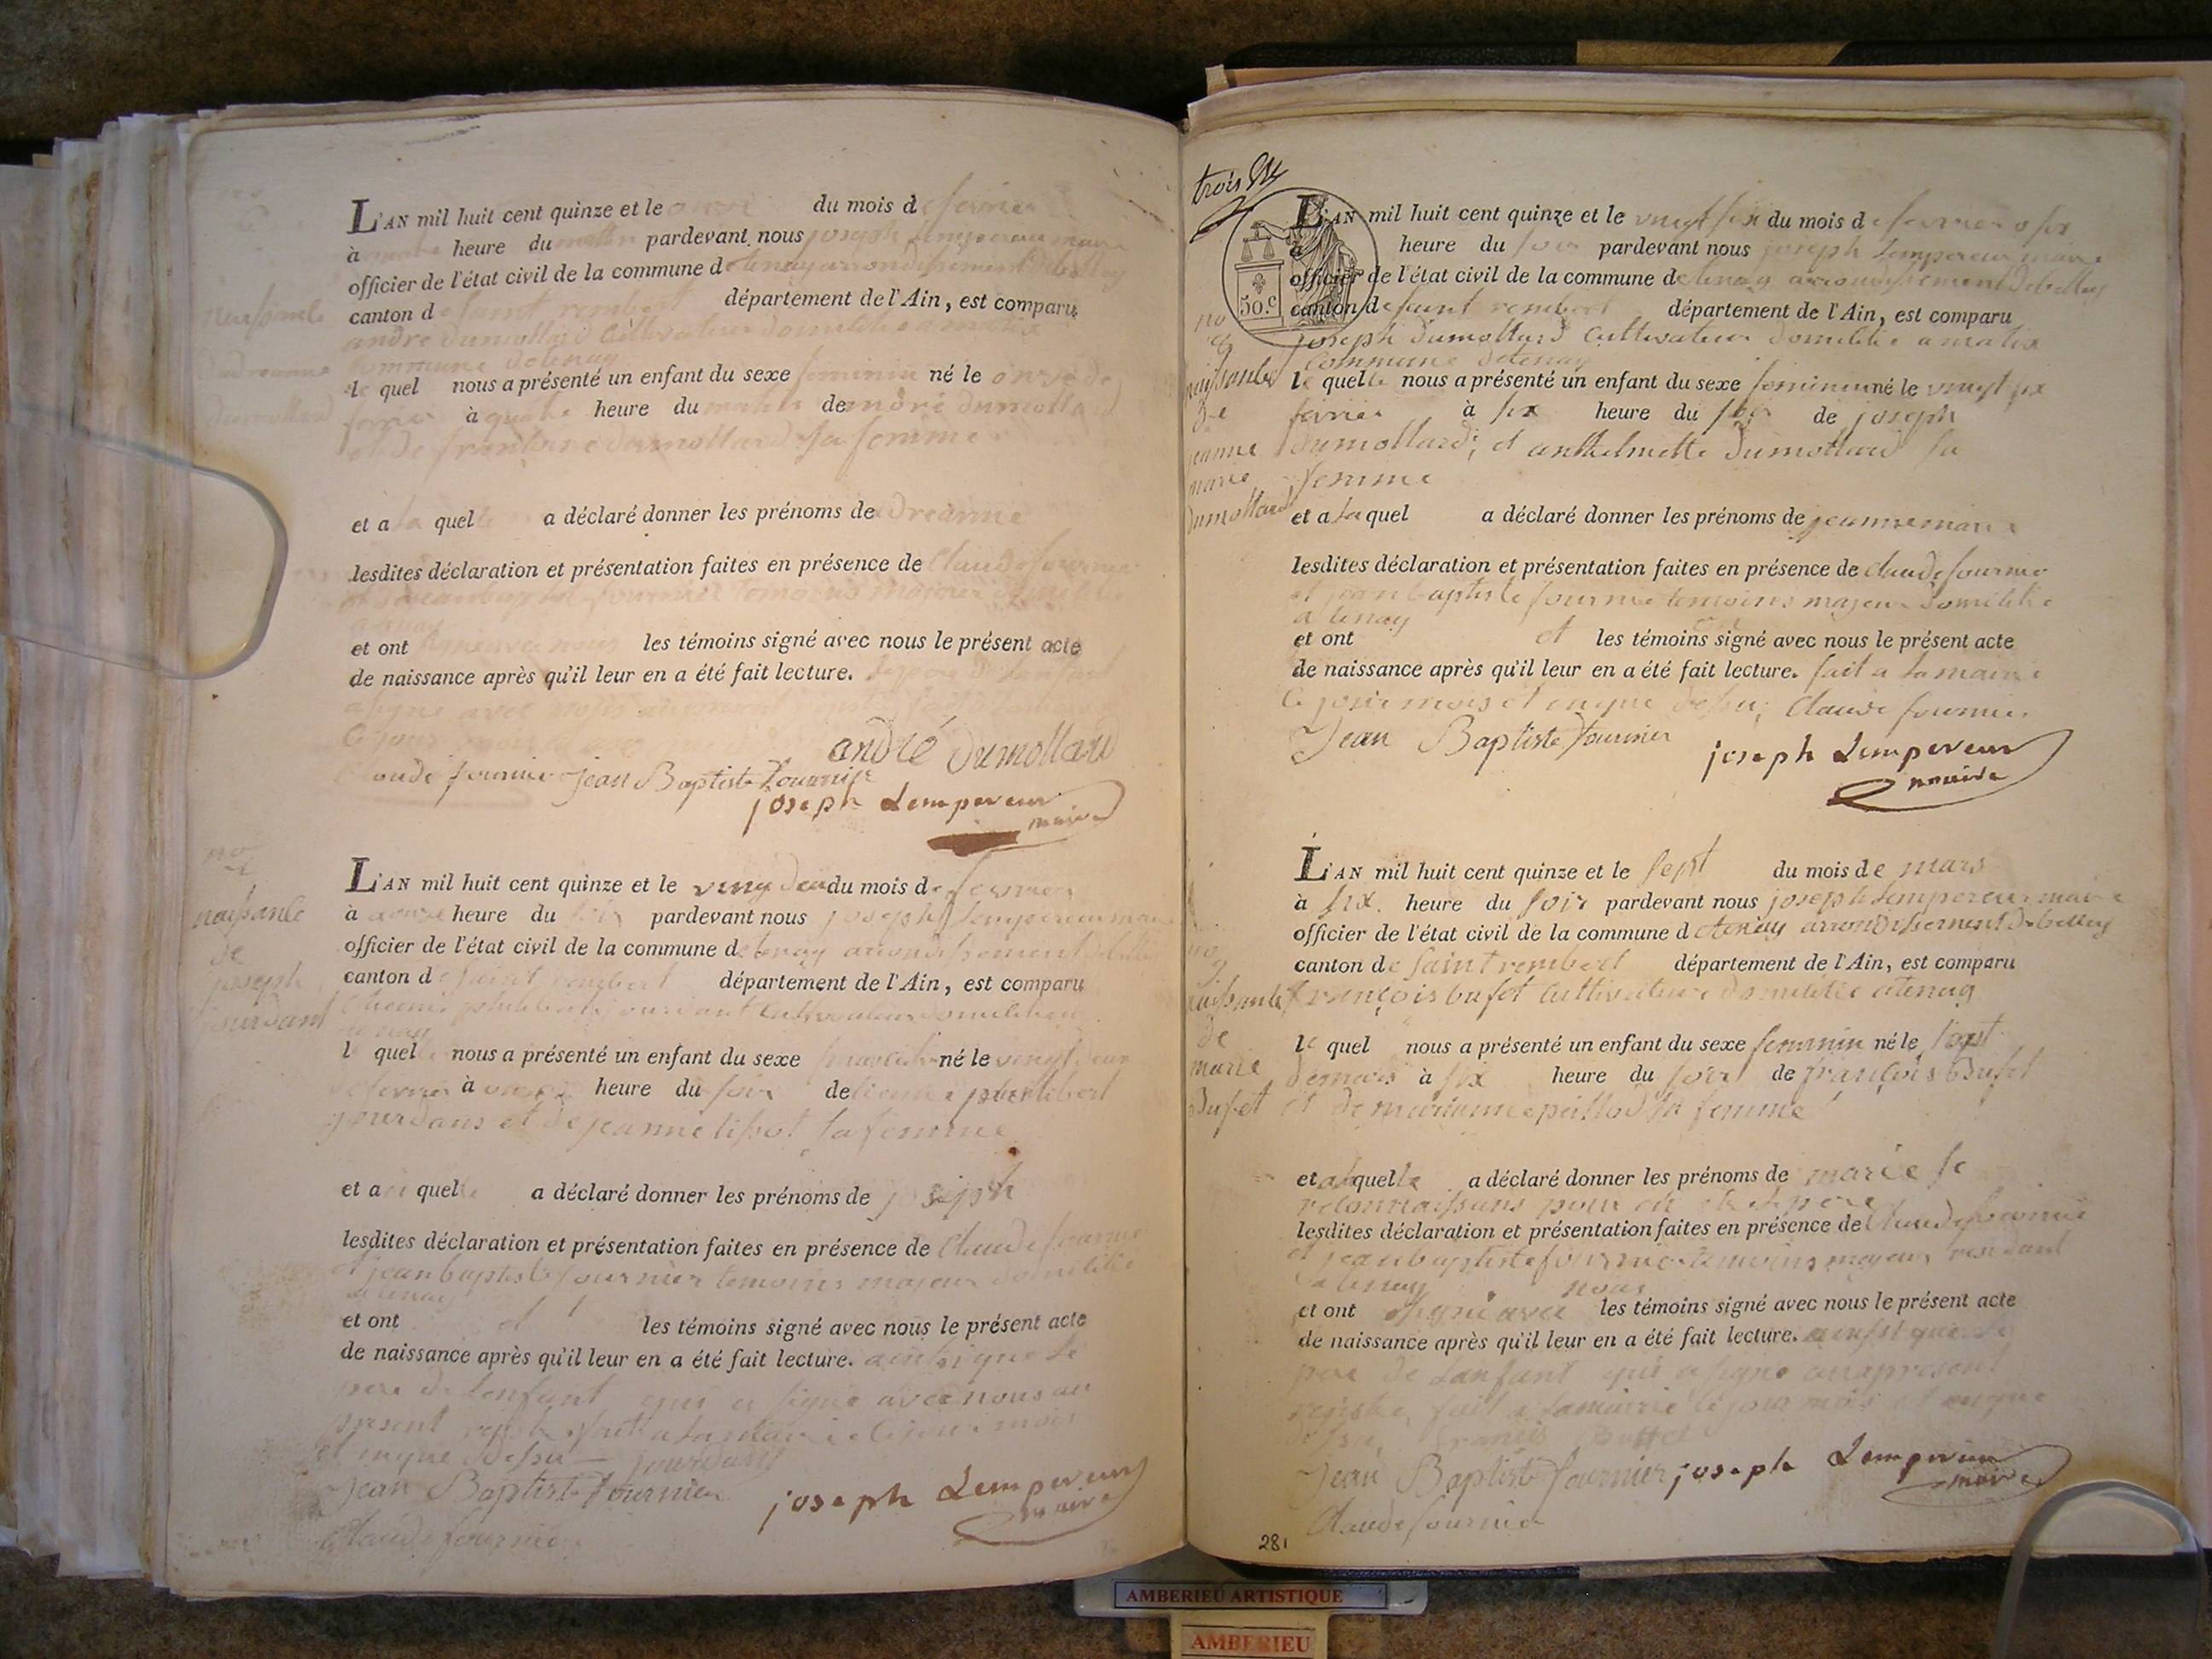 no
6
naissance
dreanne
dumollard
L'AN mil huit cent quinze et le onze du mois de fevrier
à quatre heure du matin pardevant nous joseph Lempereur maire
officier de l'état civil de la commune de tenay arrondissement de belley
canton de saint rembert département de l'Ain, est comparu
andre dumollard Cultivateur domicilié a malix
commune de tenay
le quel nous a présenté un enfant du sexe feminin né le onze de
fevrier à quatre heure du matin de andré dumollard
et de dumollard sa femme
et a la quelle a déclaré donner les prénoms de dreanne
lesdites déclaration et présentation faites en présence de Claude fournier
et jean baptiste fournier temoins majeur domicilié
a tenay
et ont les témoins signé avec nous le présent acte
de naissance après qu'il leur en a été fait lecture.
a signé avec nous
le jour mois
andré dumollard
Claude fournier jean Baptiste fournier
joseph Lempereur
maire
no
7
naissance
de
joseph
jourdant
L'AN mil huit cent quinze et le vingt deu du mois de fevrier
à onze heure du soir pardevant nous joseph Lempereur maire
officier de l'état civil de la commune de tenay arrondissement de belley
canton de saint rembert département de l'Ain, est comparu
philibert jourdant cultivateur domicilié a
tenay
le quel nous a présenté un enfant du sexe masculin né le vingt deux
de fevrier à onze heure du soir de philibert
jourdans et de jeanne tissot sa femme
et a quel a déclaré donner les prénoms de joseph
lesdites déclaration et présentation faites en présence de Claude fournier
et jean baptiste fournier temoins majeur domicilié
a tenay
et ont et les témoins signé avec nous le présent acte
de naissance après qu'il leur en a été fait lecture. ainsi que le
pere de lenfant qui a signé avec nous au
present fait a la mairie le jour mois
et en que dessu jourdant
Jean Baptiste fournier joseph Lempereur
maire
Claude fournier
trois
50.c
no
8
naissance
de
jeanne
marie
dumollard
L'AN mil huit cent quinze et le vingt six du mois de fevrier a six
à heure du soir pardevant nous joseph Lempereur maire
officier de l'état civil de la commune de tenay arrondissement de belley
canton de saint rembert département de l'Ain, est comparu
joseph dumollard cultivateur domicilié a malix
commune de tenay
le quelle nous a présenté un enfant du sexe feminin né le vingt six
fevrier à six heure du soir de joseph
dumollard; et anthelmette dumollard sa
femme
et a la quel a déclaré donner les prénoms de jeanne marie
lesdites déclaration et présentation faites en présence de Claude fournier
et jean baptiste fournier temoins majeur domicilié
a tenay
et ont et les témoins signé avec nous le présent acte
de naissance après qu'il leur en a été fait lecture. fait a la mairie
le jour mois et en que dessu; Claude fournier
Jean Baptiste fournier
joseph Lempereur
maire
no
9
naissance
de
marie
Bufet
L'AN mil huit cent quinze et le sept du mois de mars
à six heure du soir pardevant nous joseph Lempereur maire
officier de l'état civil de la commune de tenay arrondissement de belley
canton de saint rembert département de l'Ain, est comparu
françois bufet cultivateur domicilié a tenay
le quel nous a présenté un enfant du sexe feminin né le sept
de mars à six heure du soir de françois Bufet
et de marianne peillod sa femme
et a la quelle a déclaré donner les prénoms de marie se
reconnaissant pour en etre le pere
lesdites déclaration et présentation faites en présence de Claude fournier
et jean baptiste fournier temoins majeur residant
a tenay nous
et ont signé avec les témoins signé avec nous le présent acte
de naissance après qu'il leur en a été fait lecture. ainsi que le
pere de Lenfant qui a signé au present
registre, fait a la mairie le jour mois et an que
dessu, francois Buffet
Jean Baptiste fournier joseph Lempereur
maire
Claude fournier
281
AMBERIEU ARTISTIQUE
AMBERIEU